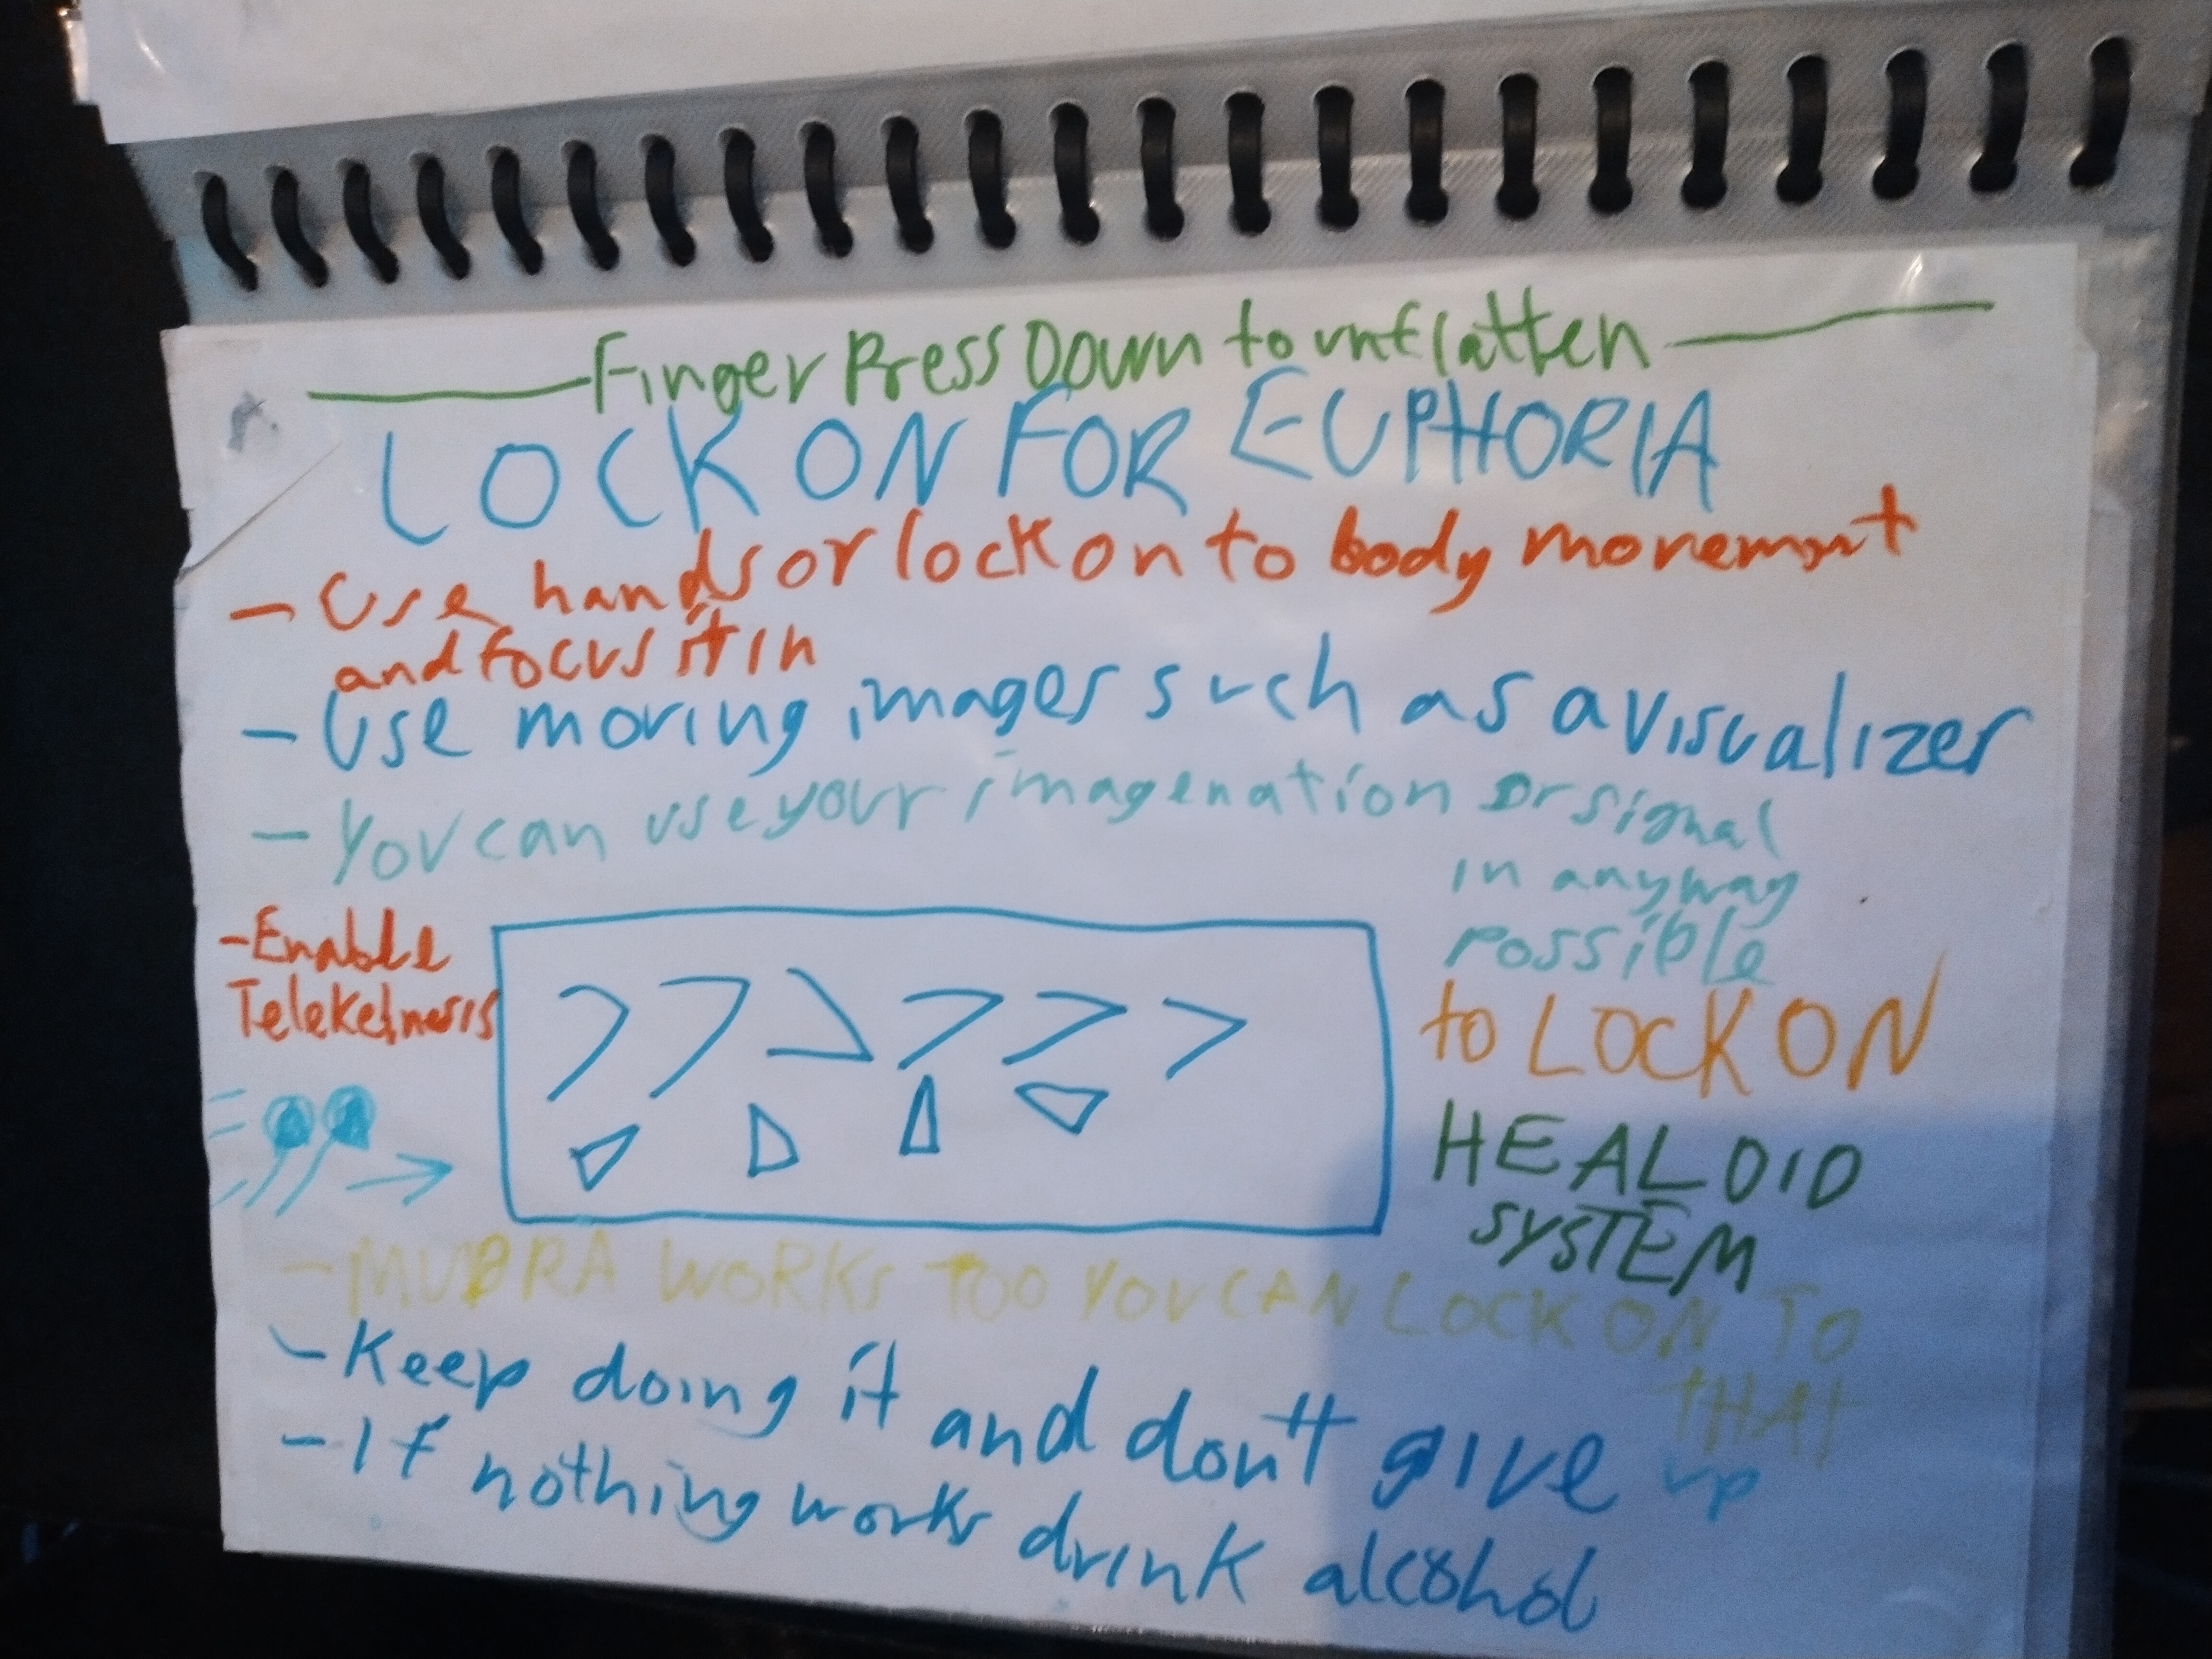 Finger Press Down to unflatten
LOCK ON FOR EUPHORIA
- Use hands or lock on to body movement
and focus it in
- Use moving images such as a visualizer
- You can use your imagenation or signal
in anyway
possible
to LOCK ON
- Enable
Telekeinesis
HEALOID
SYSTEM
- MUDRA WORKS TOO YOU CAN LOCK ON TO
THAT
- Keep doing it and don't give up
- If nothing works drink alcohol